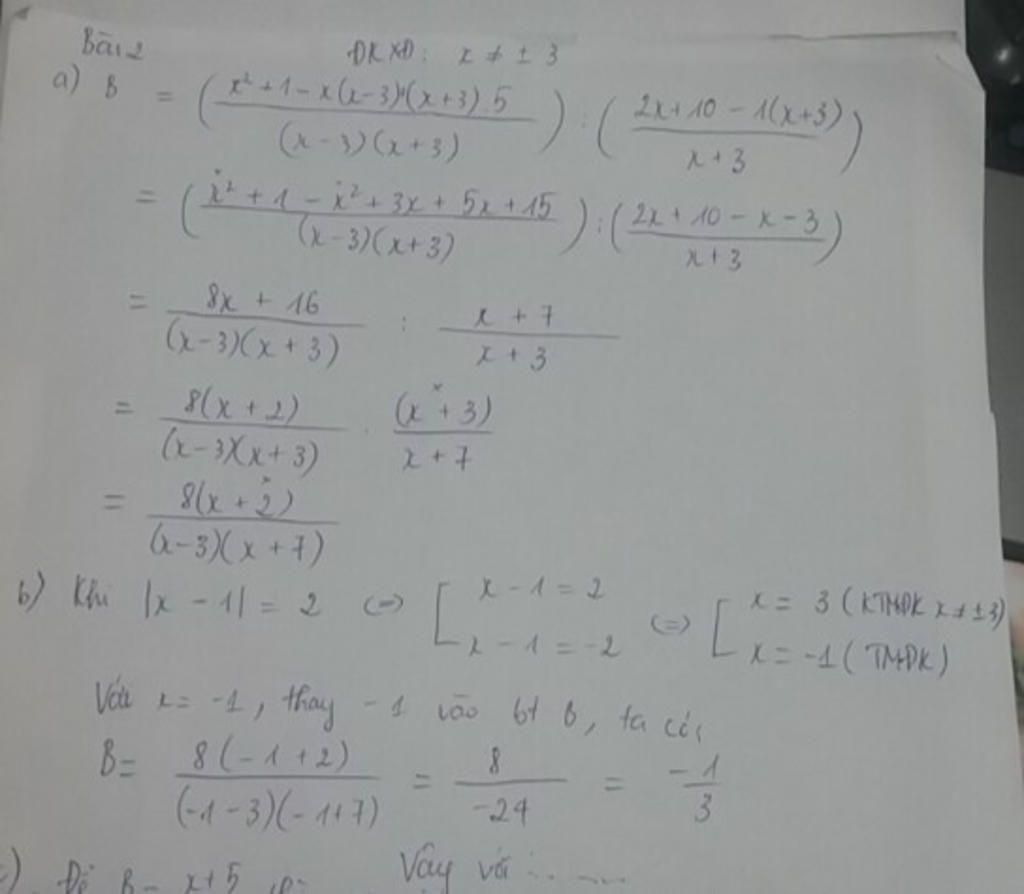 Bài 2 ĐKXĐ: x ≠ ± 3
a) B = (x² + 1 - x(x-3)+(x+3).5 / (x-3)(x+3)) : (2x+10 - 1(x+3) / x+3)
= (x² + 1 - x² + 3x + 5x + 15 / (x-3)(x+3)) : (2x + 10 - x - 3 / x+3)
= 8x + 16 / (x-3)(x+3) : x + 7 / x + 3
= 8(x + 2) / (x-3)(x+3) . (x + 3) / x + 7
= 8(x + 2) / (x-3)(x+7)
b) Khi |x - 1| = 2 <=> [ x - 1 = 2 <=> [ x = 3 (KTMĐK x ≠ ±3)
x - 1 = -2 x = -1 (TMĐK)
Với x = -1, thay -1 vào bt B, ta có:
B = 8(-1+2) / (-1-3)(-1+7) = 8 / -24 = -1 / 3
Vậy với .......
c) Để B = x+5